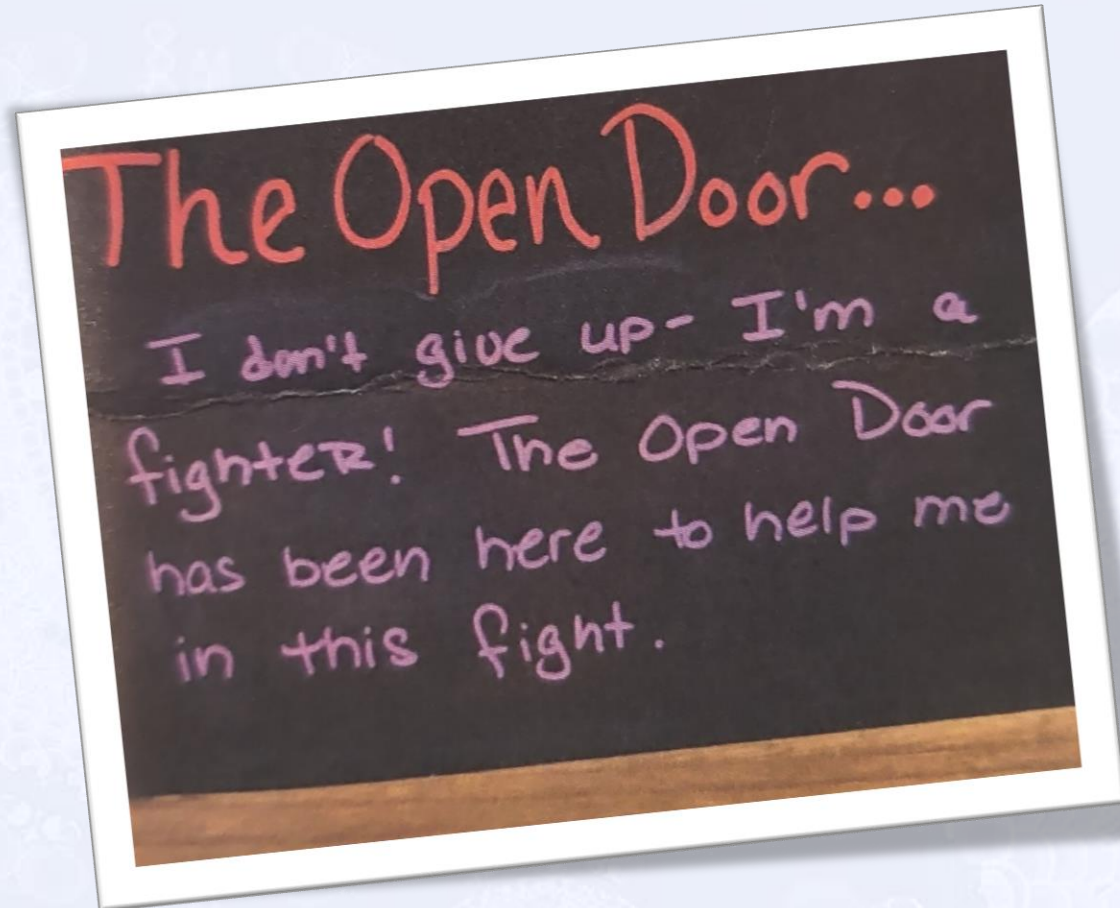 The Open Door...
I don't give up- I'm a
fighteR! The Open Door
has been here to help me
in this fight.